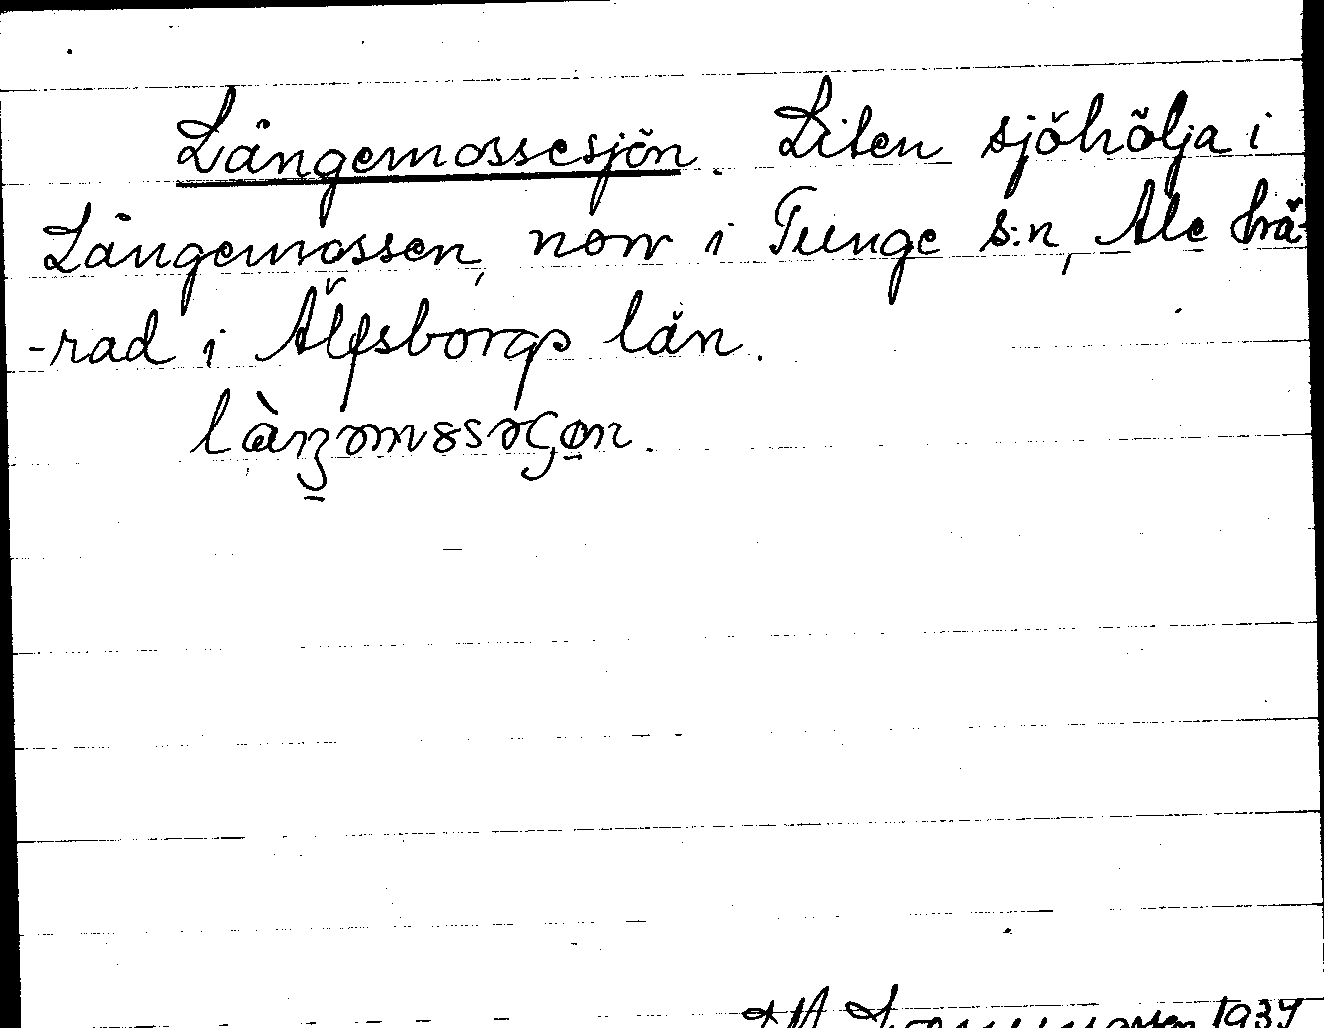 Långemossesjön. Liten sjöhölja i
Långemossen, norr i Tunge s:n, Ale hä-
-rad i Älfsborgs län.
1934